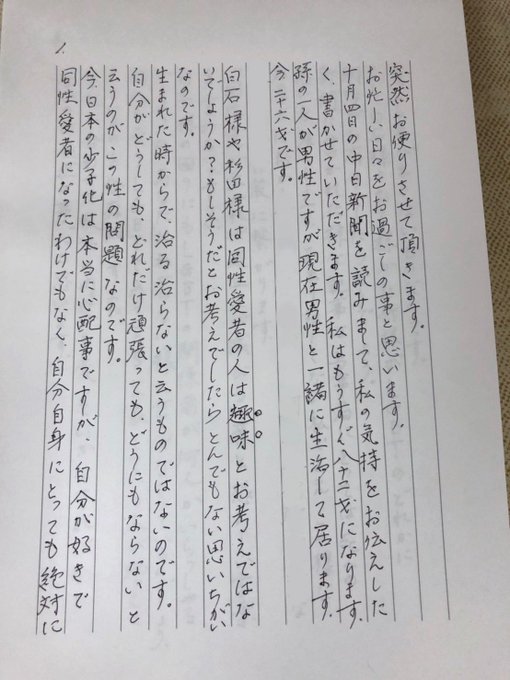 1.
突然お便りさせて頂きます。
お忙しい日々をお過ごしの事と思います。
十月四日の中日新聞を読みまして、私の気持をお伝えした
く、書かせていただきます。私はもうすぐ八十二才になります。
孫の一人が男性ですが現在男性と一緒に生活して居ります。
今二十六才です。
白石様や杉田様は同性愛者の人は趣味とお考えではな
いでしょうか?もしそうだとお考えでしたらとんでもない思いちがい
なのです。
生まれた時からで、治る治らないと云うものではないのです。
自分がどうしても、どれだけ頑張っても、どうにもならないと
云うのがこの性の問題なのです。
今、日本の少子化は本当に心配事ですが、自分が好きで
同性愛者になったわけでもなく、自分自身にとっても絶対に